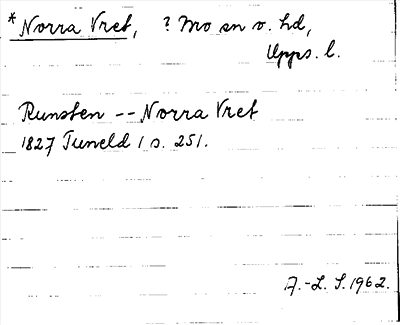 *Norra Vret, ? Mo sn o. hd,
Upps. l.
Runsten -- Norra Vret
1827 Tuneld 1 s. 251.
A.-L. S. 1962.